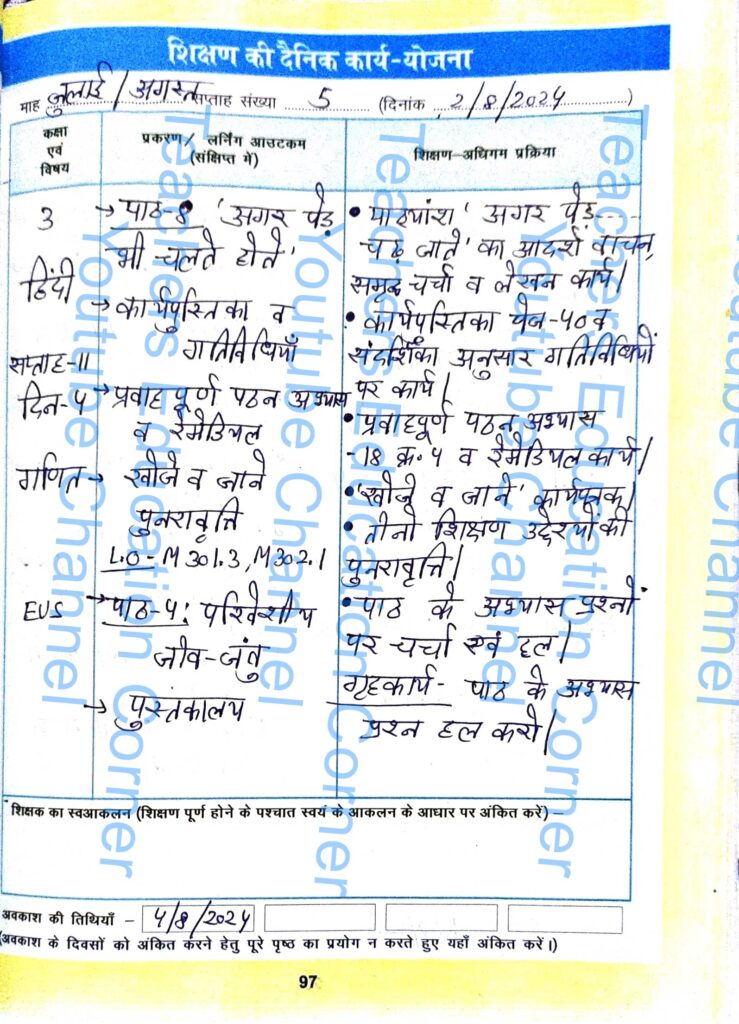 शिक्षण की दैनिक कार्य-योजना
माह जुलाई / अगस्त सप्ताह संख्या 5 (दिनांक 2/8/2024)
कक्षा एवं विषय
प्रकरण / लर्निंग आउटकम (संक्षिप्त में)
शिक्षण-अधिगम प्रक्रिया
3
हिंदी
सप्ताह-11
दिन-4
गणित
EVS
→ पाठ-8 'अगर पेड़
भी चलते होते'
→ कार्यपुस्तिका व
गतिविधियाँ
→ प्रवाहपूर्ण पठन अभ्यास
व रेमेडियल
→ खोजे व जाने
पुनरावृत्ति
L.O- M 301.3, M 302.1
→ पाठ-4: परिवेशीय
जीव-जंतु
→ पुस्तकालय
• पाठ्यांश 'अगर पेड़....
चढ़ जाते' का आदर्श वाचन,
समूह चर्चा व लेखन कार्य।
• कार्यपुस्तिका पेज-40 व
संदर्शिका अनुसार गतिविधियों
पर कार्य।
• प्रवाहपूर्ण पठन अभ्यास
-18 क्र.4 व रेमेडियल कार्य।
• 'खोजे व जाने' कार्यपत्रक।
• तीनो शिक्षण उद्देश्यों की
पुनरावृत्ति।
• पाठ के अभ्यास प्रश्नों
पर चर्चा एवं हल।
गृहकार्य- पाठ के अभ्यास
प्रश्न हल करो।
शिक्षक का स्वआकलन (शिक्षण पूर्ण होने के पश्चात स्वयं के आकलन के आधार पर अंकित करें) –
अवकाश की तिथियाँ – 4/8/2024
(अवकाश के दिवसों को अंकित करने हेतु पूरे पृष्ठ का प्रयोग न करते हुए यहाँ अंकित करें।)
97
Teachers Education Corner
Youtube Channel
Teachers Education Corner
Youtube Channel
Teachers Education Corner
Youtube Channel